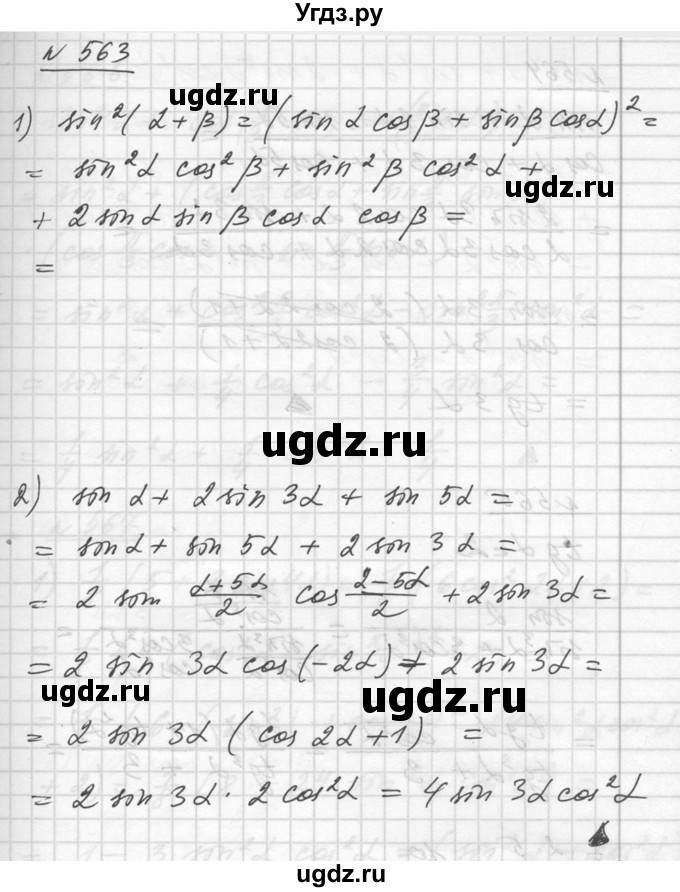 Угдз.ру
N 563
1) sin²(α+β)=(sin α cos β + sin β cos α)² =
ugdz.ru
= sin²α cos²β + sin²β cos²α +
ugdz.ru
+ 2 sin α sin β cos α cos β =
=
ugdz.ru
2) sin α + 2 sin 3α + sin 5α =
= sin α + sin 5α + 2 sin 3α =
= 2 sin (α+5α)/2 cos (α−5α)/2 + 2 sin 3α =
= 2 sin 3α cos(−2α) + 2 sin 3α =
ugdz.ru ugdz.ru
= 2 sin 3α (cos 2α + 1) =
= 2 sin 3α · 2 cos²α = 4 sin 3α cos²α
ugdz.ru